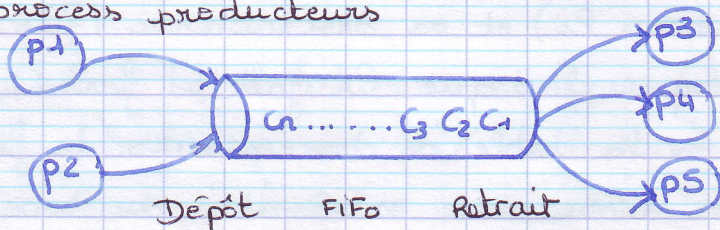 process producteurs
p1
p3
Cn......C3 C2 C1
p4
p2
p5
Dépôt FiFo Retrait